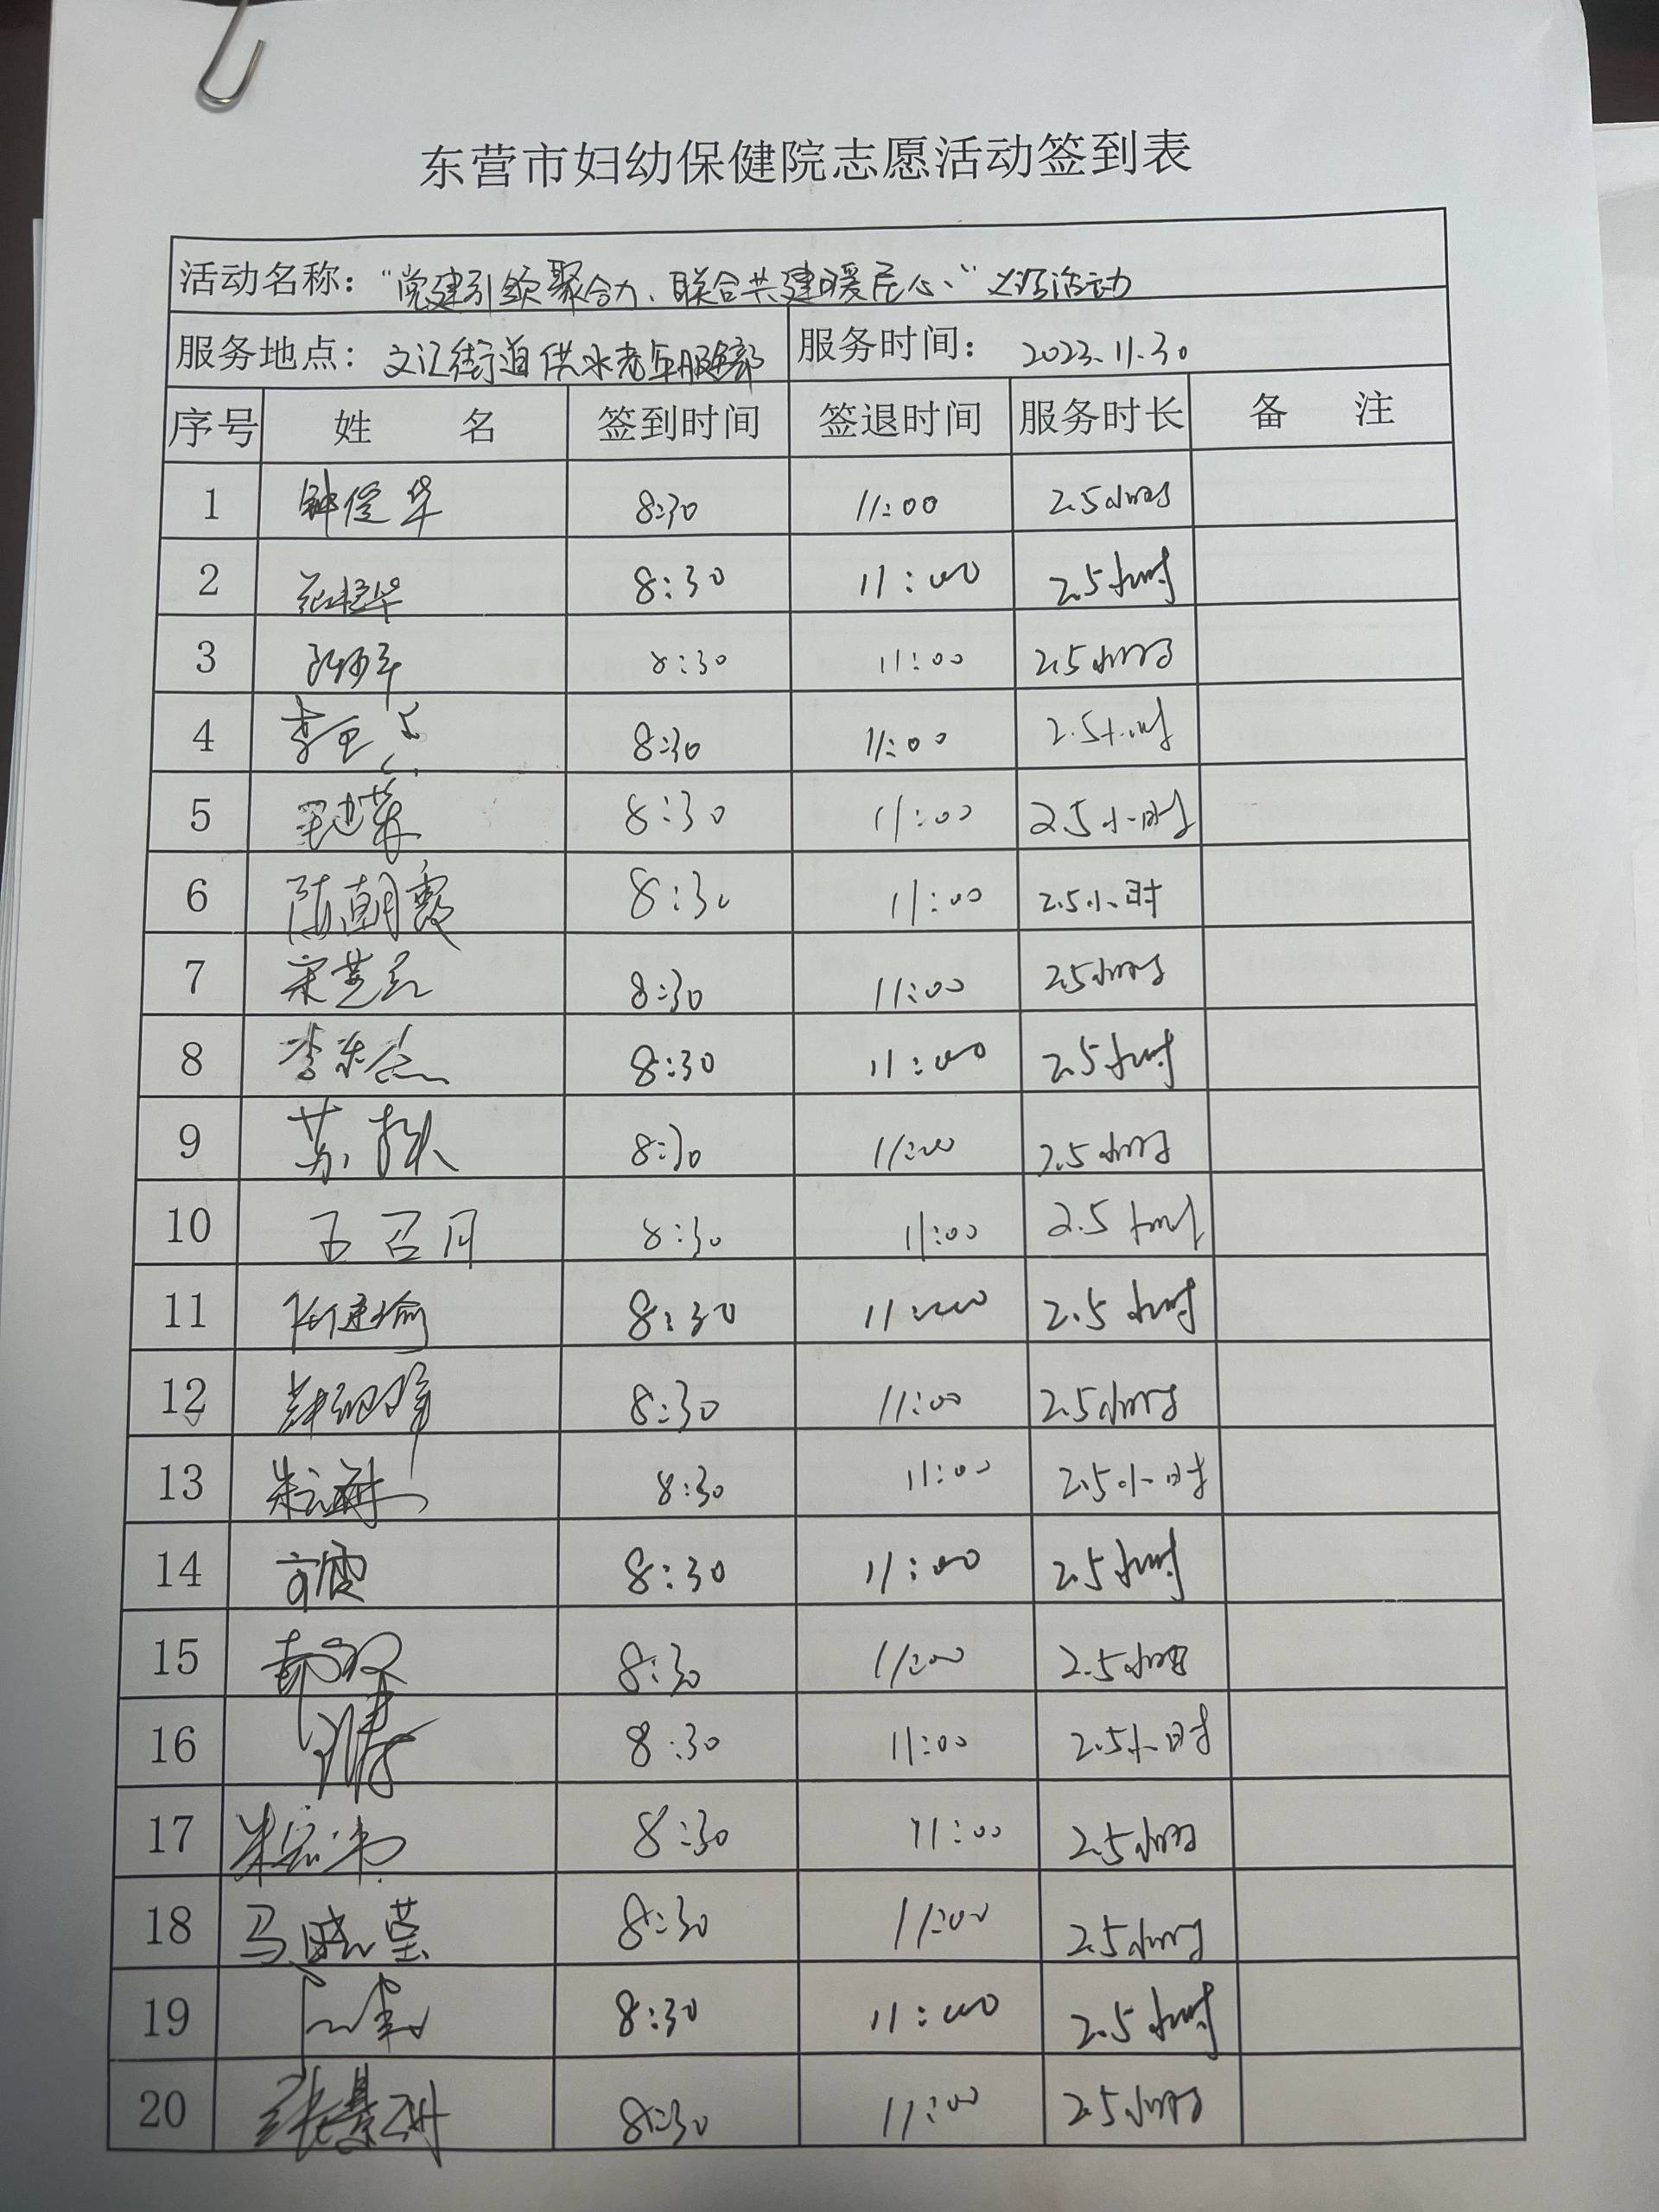 东营市妇幼保健院志愿活动签到表
活动名称：“党建引领聚合力、联合共建暖民心”义诊活动
服务地点：文汇街道供水老年服务部 服务时间：2023.11.30
序号 姓 名 签到时间 签退时间 服务时长 备 注
1 8:30 11:00 2.5小时
2 8:30 11:00 2.5小时
3 8:30 11:00 2.5小时
4 8:30 11:00 2.5小时
5 8:30 11:00 2.5小时
6 陈朝霞 8:30 11:00 2.5小时
7 8:30 11:00 2.5小时
8 8:30 11:00 2.5小时
9 8:30 11:00 2.5小时
10 王召月 8:30 11:00 2.5小时
11 8:30 11:00 2.5小时
12 8:30 11:00 2.5小时
13 8:30 11:00 2.5小时
14 8:30 11:00 2.5小时
15 8:30 11:00 2.5小时
16 8:30 11:00 2.5小时
17 8:30 11:00 2.5小时
18 马晓莹 8:30 11:00 2.5小时
19 8:30 11:00 2.5小时
20 8:30 11:00 2.5小时